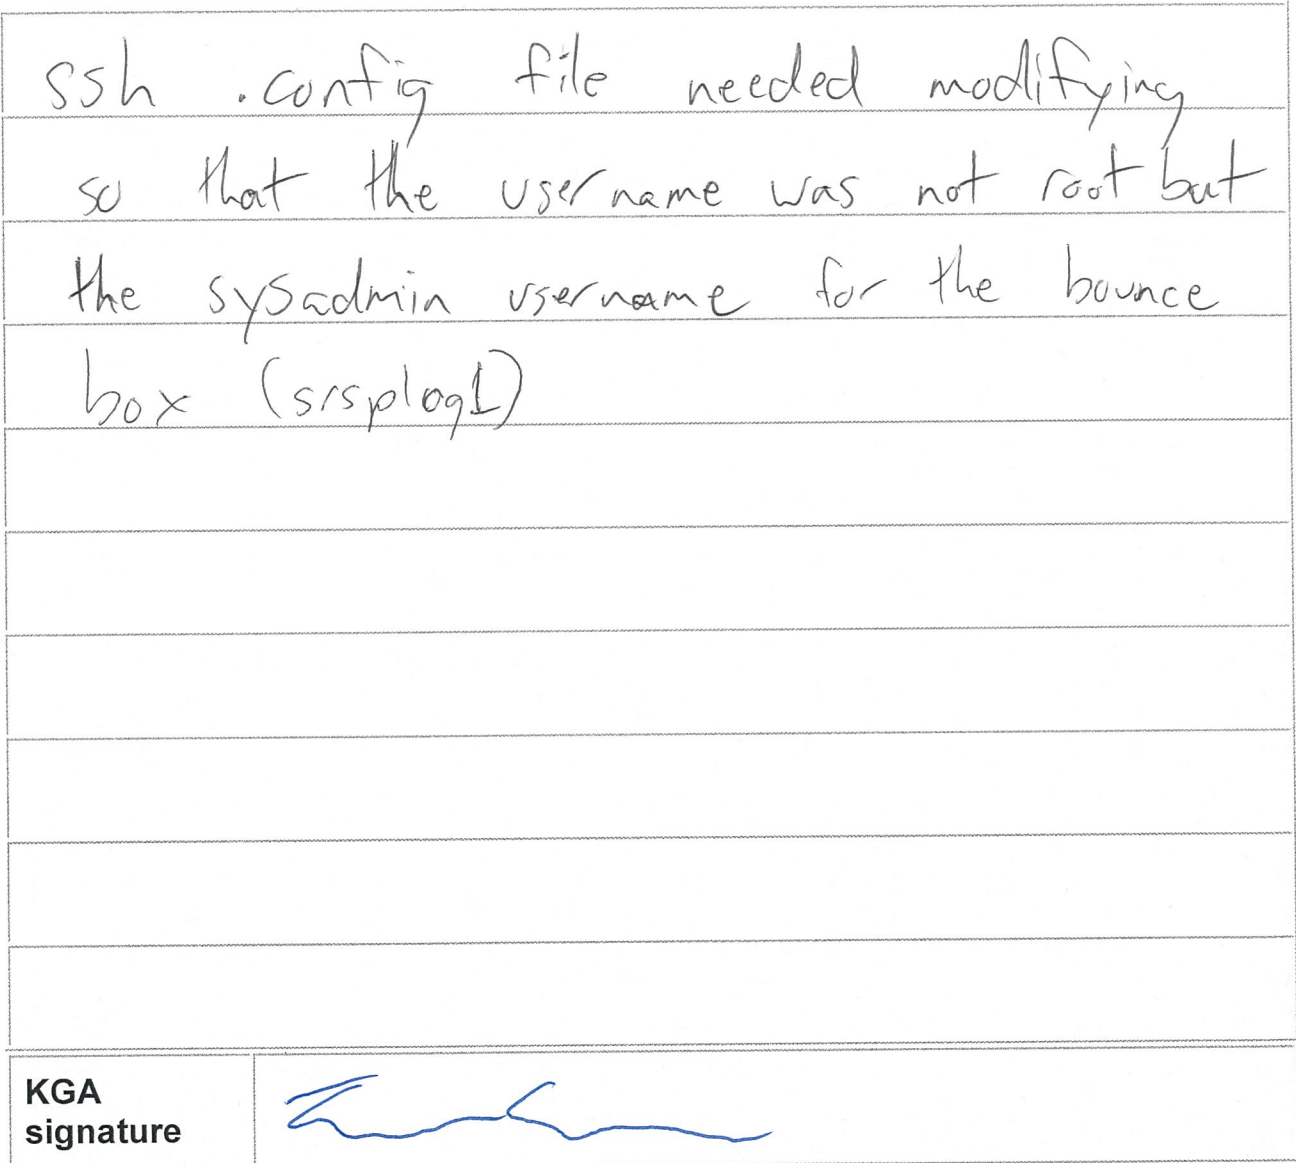 ssh .config file needed modifying
so that the username was not root but
the sysadmin username for the bounce
box (srsplog1)
KGA
signature